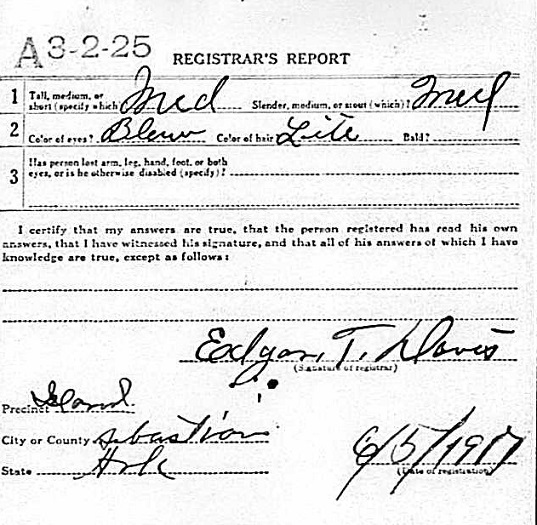 A 3-2-25 REGISTRAR'S REPORT
1 Tall, medium, or short (specify which) Med Slender, medium, or stout (which)? Med
2 Color of eyes? Blew Color of hair Lite Bald?
3 Has person lost arm, leg, hand, foot, or both eyes, or is he otherwise disabled (specify)?
I certify that my answers are true, that the person registered has read his own
answers, that I have witnessed his signature, and that all of his answers of which I have
knowledge are true, except as follows:
Edgar T. Davis
(Signature of registrar)
Precinct Island
City or County Sebastian
State Ark
6/5/1917
(Date of registration)